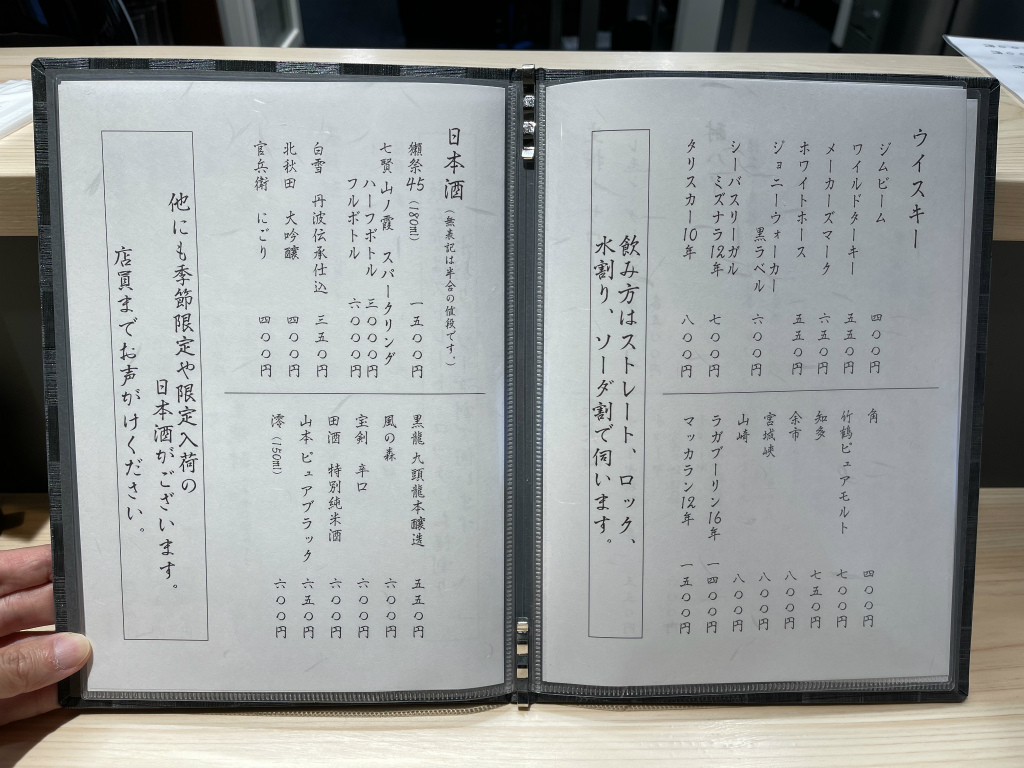 ウイスキー
ジムビーム 四〇〇円
ワイルドターキー 五五〇円
メーカーズマーク 六五〇円
ホワイトホース 五五〇円
ジョニーウォーカー
黒ラベル 六〇〇円
シーバスリーガル
ミズナラ12年 七〇〇円
タリスカー10年 八〇〇円
角 四〇〇円
竹鶴ピュアモルト 七〇〇円
知多 七五〇円
余市 八〇〇円
宮城峡 八〇〇円
山崎 八〇〇円
ラガブーリン16年 一四〇〇円
マッカラン12年 一五〇〇円
飲み方はストレート、ロック、
水割り、ソーダ割で伺います。
日本酒(無表記は半合の値段です。)
獺祭45(180ml) 一五〇〇円
七賢 山ノ霞 スパークリング
ハーフボトル 三〇〇〇円
フルボトル 六〇〇〇円
白雪 丹波伝承仕込 三五〇円
北秋田 大吟醸 四〇〇円
官兵衛 にごり 四〇〇円
黒龍 九頭龍本醸造 五五〇円
風の森 六〇〇円
宝剣 辛口 六〇〇円
田酒 特別純米酒 六〇〇円
山本 ピュアブラック 六五〇円
澪(150ml) 六〇〇円
他にも季節限定や限定入荷の
日本酒がございます。
店員までお声がけください。